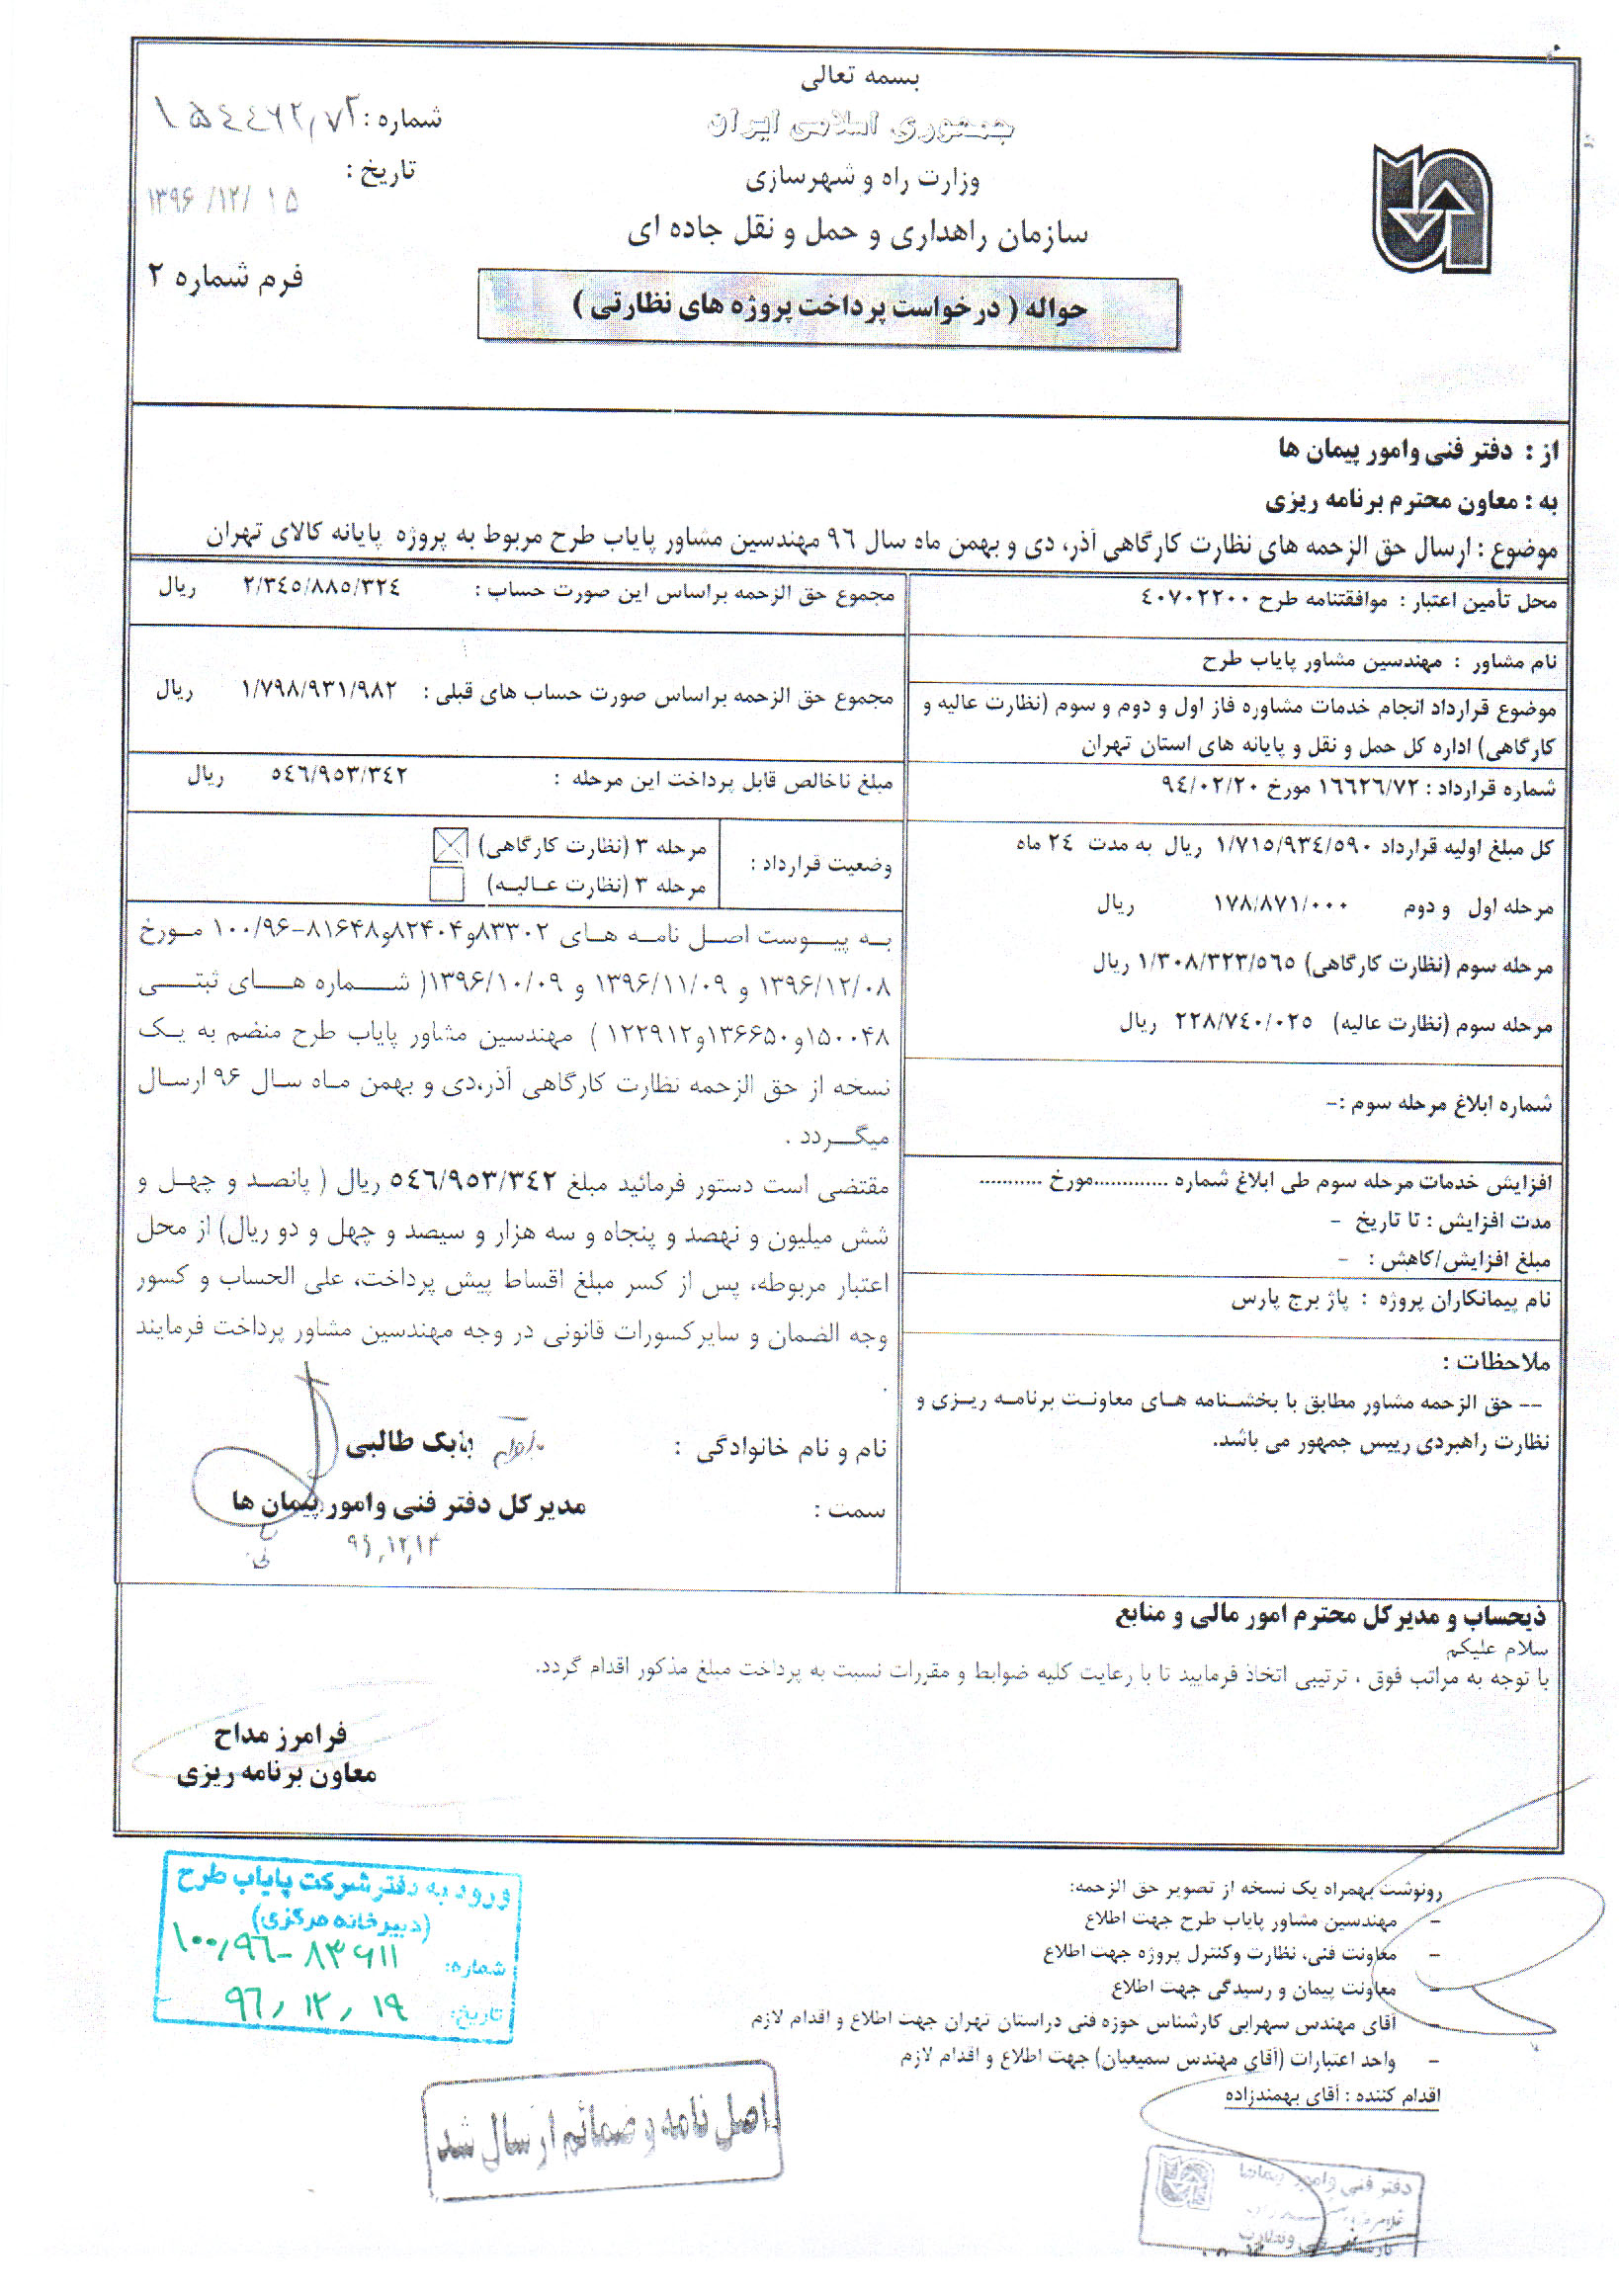 بسمه تعالی
جمهوری اسلامی ایران
وزارت راه و شهرسازی
سازمان راهداری و حمل و نقل جاده ای
حواله ( درخواست پرداخت پروژه های نظارتی )
شماره : ۱۵۴۴۶۲/۷۲
تاریخ :
۱۳۹۶/۱۲/۱۵
فرم شماره ۲
از : دفتر فنی وامور پیمان ها
به : معاون محترم برنامه ریزی
موضوع : ارسال حق الزحمه های نظارت کارگاهی آذر، دی و بهمن ماه سال ۹٦ مهندسین مشاور پایاب طرح مربوط به پروژه پایانه کالای تهران
محل تأمین اعتبار : موافقتنامه طرح ٤٠٧٠٢٢٠٠
نام مشاور : مهندسین مشاور پایاب طرح
موضوع قرارداد انجام خدمات مشاوره فاز اول و دوم و سوم (نظارت عالیه و
کارگاهی) اداره کل حمل و نقل و پایانه های استان تهران
شماره قرارداد : ۱٦٦٢٦/٧٢ مورخ ٩٤/٠٢/٢٠
کل مبلغ اولیه قرارداد ١/٧١٥/٩٣٤/٥٩٠ ریال به مدت ٢٤ ماه
مرحله اول و دوم ١٧٨/٨٧١/٠٠٠ ریال
مرحله سوم (نظارت کارگاهی) ١/٣٠٨/٣٢٣/٥٦٥ ریال
مرحله سوم (نظارت عالیه) ٢٢٨/٧٤٠/٠٢٥ ریال
شماره ابلاغ مرحله سوم :-
افزایش خدمات مرحله سوم طی ابلاغ شماره .............مورخ ...........
مدت افزایش : تا تاریخ -
مبلغ افزایش/کاهش : -
نام پیمانکاران پروژه : پاژ برج پارس
ملاحظات :
-- حق الزحمه مشاور مطابق با بخشنامه های معاونت برنامه ریزی و
نظارت راهبردی رییس جمهور می باشد.
مجموع حق الزحمه براساس این صورت حساب : ٢/٣٤٥/٨٨٥/٣٢٤ ریال
مجموع حق الزحمه براساس صورت حساب های قبلی : ١/٧٩٨/٩٣١/٩٨٢ ریال
مبلغ ناخالص قابل پرداخت این مرحله : ٥٤٦/٩٥٣/٣٤٢ ریال
وضعیت قرارداد :
مرحله ۳ (نظارت کارگاهی)
مرحله ۳ (نظارت عالیه)
به پیوست اصل نامه های ۸۳۳۰۲و۸۲۴۰۴و۸۱۶۴۸-۱۰۰/۹۶ مورخ
۱۳۹۶/۱۲/۰۸ و ۱۳۹۶/۱۱/۰۹ و ۱۳۹۶/۱۰/۰۹( شماره های ثبتی
۱۵۰۰۴۸و۱۳۶۶۵۰و۱۲۲۹۱۲ ) مهندسین مشاور پایاب طرح منضم به یک
نسخه از حق الزحمه نظارت کارگاهی آذر،دی و بهمن ماه سال ۹۶ ارسال
میگردد .
مقتضی است دستور فرمائید مبلغ ٥٤٦/٩٥٣/٣٤٢ ریال ( پانصد و چهل و
شش میلیون و نهصد و پنجاه و سه هزار و سیصد و چهل و دو ریال) از محل
اعتبار مربوطه، پس از کسر مبلغ اقساط پیش پرداخت، علی الحساب و کسور
وجه الضمان و سایرکسورات قانونی در وجه مهندسین مشاور پرداخت فرمایند
.
نام و نام خانوادگی : بابک طالبی
سمت : مدیرکل دفتر فنی وامور پیمان ها
۹۶,۱۲,۱۳
ذیحساب و مدیرکل محترم امور مالی و منابع
سلام علیکم
با توجه به مراتب فوق ، ترتیبی اتخاذ فرمایید تا با رعایت کلیه ضوابط و مقررات نسبت به پرداخت مبلغ مذکور اقدام گردد.
فرامرز مداح
معاون برنامه ریزی
رونوشت بهمراه یک نسخه از تصویر حق الزحمه:
- مهندسین مشاور پایاب طرح جهت اطلاع
- معاونت فنی، نظارت وکنترل پروژه جهت اطلاع
- معاونت پیمان و رسیدگی جهت اطلاع
- آقای مهندس سهرابی کارشناس حوزه فنی دراستان تهران جهت اطلاع و اقدام لازم
- واحد اعتبارات (آقای مهندس سمیعیان) جهت اطلاع و اقدام لازم
اقدام کننده : آقای بهمندزاده
ورود به دفتر شرکت پایاب طرح
(دبیرخانه مرکزی)
شماره: ۱۰۰/۹۶-۸۳۶۱۱
تاریخ: ۹۶/۱۲/۱۹
اصل نامه و ضمائم ارسال شد
دفتر فنی وامور پیمانها